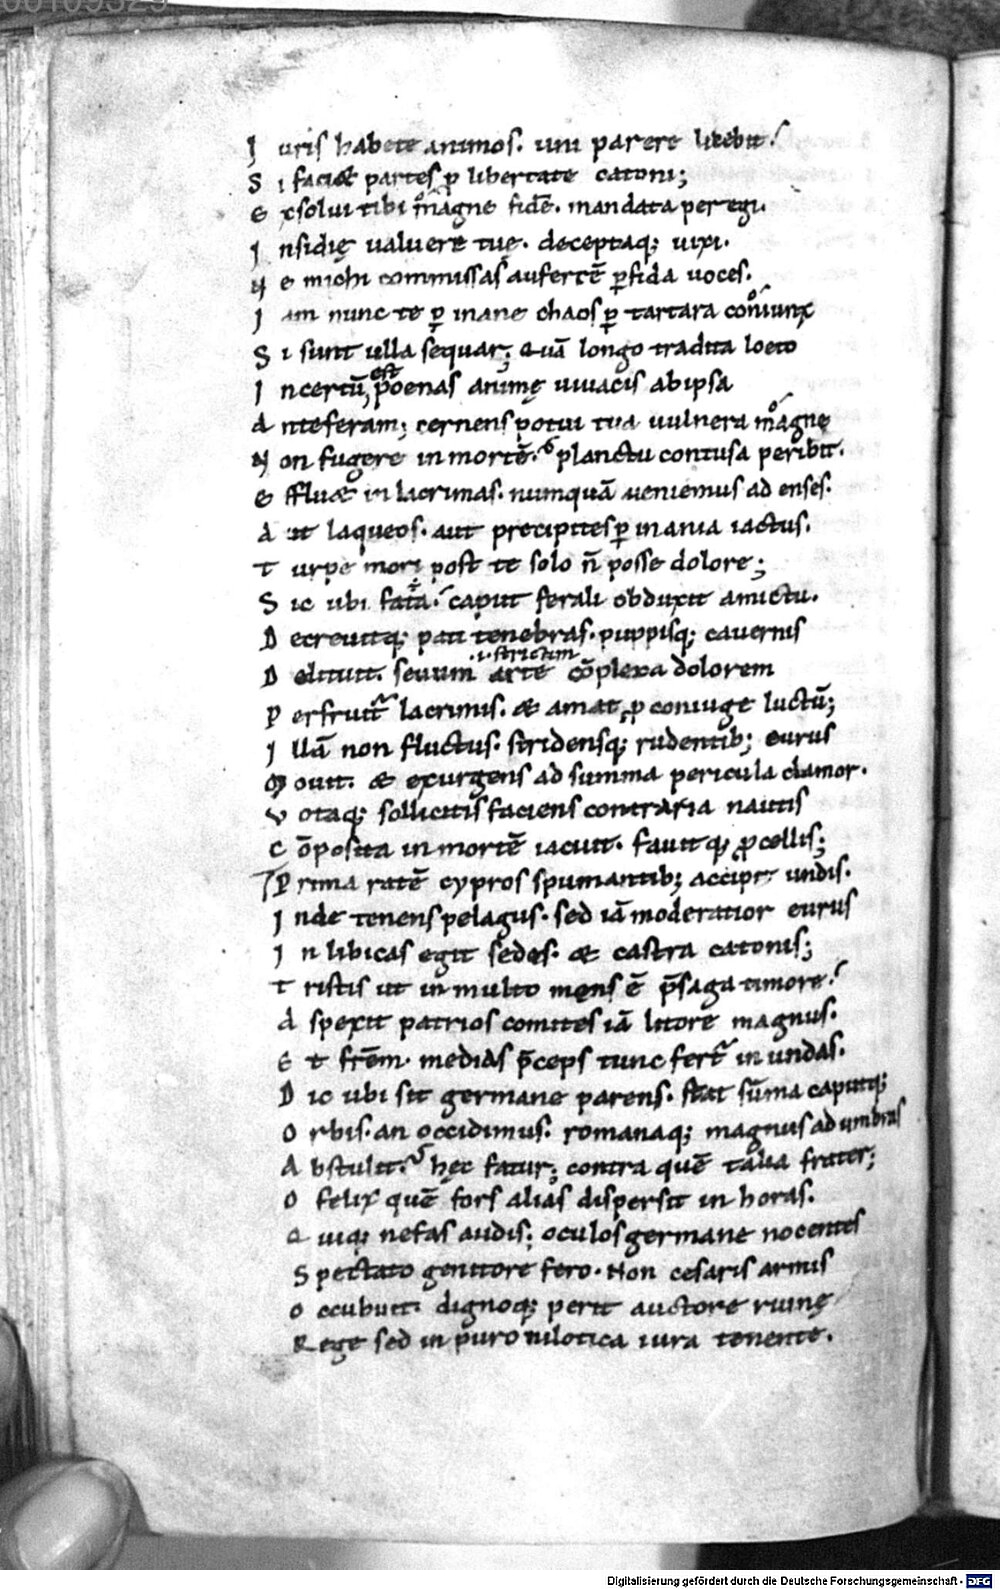 00109325
J uris habete animos. uni parere licebit.
S i faciet partes ꝓ libertate catoni;
E xsolui tibi magne fidē. mandata peregi.
J nsidię ualuere tuę. deceptaq; uixi.
N e michi commissas auferrē ꝑfida uoces.
J am nunc te ꝑ inane chaos ꝑ tartara coniunx
S i sunt ulla sequar; Quā longo tradita loeto
J ncertū; est poenas animę uiuacis ab ipsa
A nteferam; cernens potui tua uulnera magne
N on fugere in mortē. planctu contusa peribit.
E ffluet in lacrimas. numquā ueniemus ad enses.
A ut laqueos. aut precipites ꝑ inania iactus.
T urpe mori post te solo ñ posse dolore;
S ic ubi fata. caput ferali obduxit amictu.
D ecreuitq; pati tenebras. puppisq; cauernis
.i. strictim
D elituit. seuum arte cōplexa dolorem
P erfruit lacrimis. et amat ꝓ coniuge luctū;
J llā non fluctus. stridensq; rudentib; eurus
M ouit. et exurgens ad summa pericula clamor.
V otaq; sollicitis faciens contraria nautis
C ōposita in mortē iacuit. fauitq; ꝓcellis;
P rima ratē cypros spumantib; accipit undis.
J nde tenens pelagus. sed iā moderatior eurus
J n libicas egit sedes. et castra catonis;
T ristis ut in multo mens ē p̄saga timore.
A spexit patrios comites iā litore magnus.
E t fr̄em. medias p̄ceps tunc fert in undas.
D ic ubi sit germane parens. stat sūma caputq;
O rbis. an occidimus. romanaq; magnus ad umbras
A bstulit. hęc fatur; contra quē talia frater;
O felix quē fors alias dispersit in horas.
Q uiq; nefas audis; oculos germane nocentes
S pectato genitore fero. Non cesaris armis
O ccubuit. dignoq; perit auctore ruinę
R ege sed inpuro nilotica iura tenente.
Digitalisierung gefördert durch die Deutsche Forschungsgemeinschaft - DFG